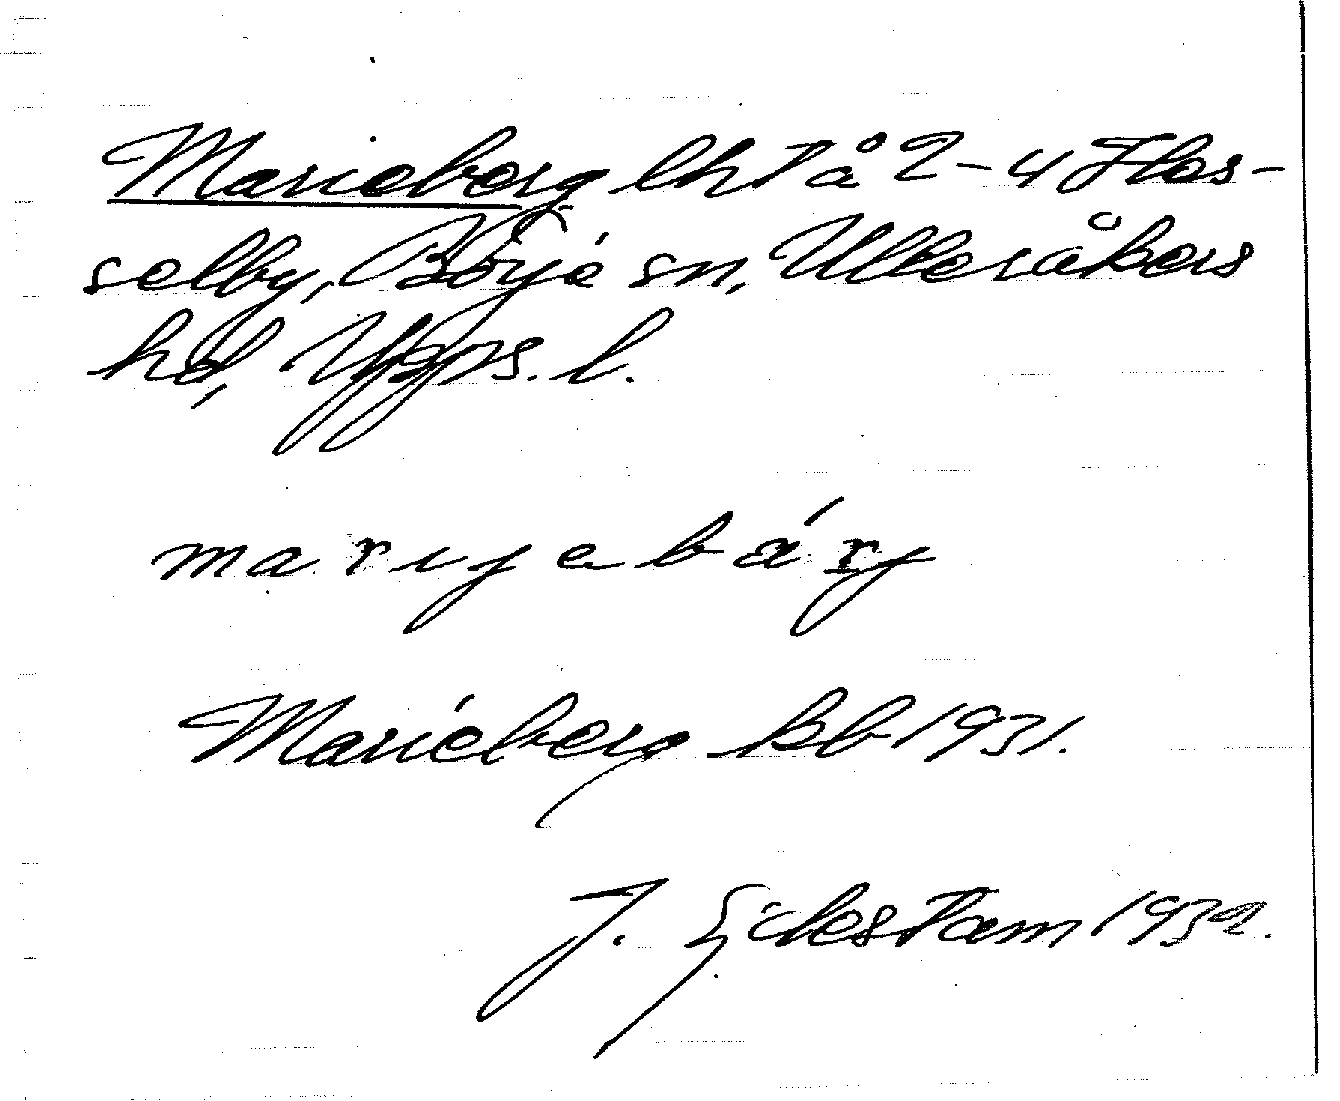 Marieberg lht å 2-4 Hös-
selby, Börje sn, Ulleråkers
hd, Upps. l.
marijebárj
Marieberg kb 1931.
J. Eidestam 1932.